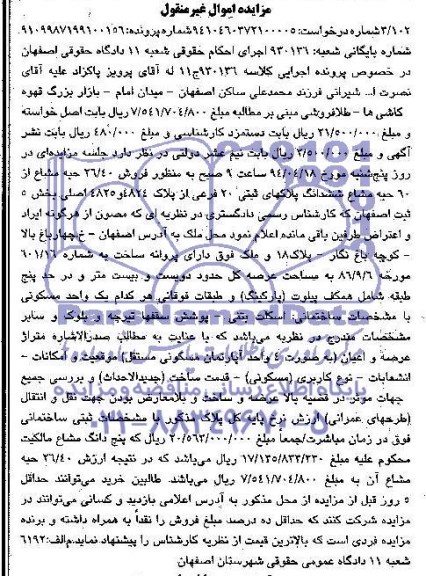 مزایده اموال غیرمنقول
۳/۱۰۲شماره درخواست: ۹۴۱۰۴۶۰۳۷۲۱۰۰۰۰۵شماره پرونده:۹۱۰۹۹۸۷۱۹۹۱۰۰۱۵۶
شماره بایگانی شعبه: ۹۳۰۱۳۶ اجرای احکام حقوقی شعبه ۱۱ دادگاه حقوقی اصفهان
در خصوص پرونده اجرایی کلاسه ۹۳۰۱۳۶ج۱۱ له آقای پرویز پاکزاد علیه آقای
نصرت ا... شیرانی فرزند محمدعلی ساکن اصفهان - میدان امام - بازار بزرگ قهوه
کاشی ها - طلافروشی مبنی بر مطالبه مبلغ ۷/۵۴۱/۷۰۴/۸۰۰ ریال بابت اصل خواسته
و مبلغ ۲۱/۵۰۰/۰۰۰ ریال بابت دستمزد کارشناسی و مبلغ ۴۸۰/۰۰۰ ریال بابت نشر
آگهی و مبلغ ۳/۵۰۰/۰۰۰ ریال بابت نیم عشر دولتی در نظر دارد جلسه مزایده‌ای در
روز پنج‌شنبه مورخ ۹۴/۰۴/۱۸ ساعت ۹ صبح به منظور فروش ۲۶/۴۰ حبه مشاع از
۶۰ حبه مشاع ششدانگ پلاکهای ثبتی ۲۰ فرعی از پلاک ۴۸۲۴و ۴۸۲۵ اصلی بخش ۵
ثبت اصفهان که کارشناس رسمی دادگستری در نظریه ای که مصون از هرگونه ایراد
و اعتراض طرفین باقی مانده اعلام نمود محل ملک به آدرس اصفهان - خ‌چهارباغ بالا
- کوچه باغ نگار - پلاک۱۸ و ملک فوق دارای پروانه ساخت به شماره ۶۰۱/۱۶
مورخه ۸۶/۹/۶ به مساحت عرصه کل حدود دویست و بیست متر و در حد پنج
طبقه شامل همکف پیلوت (پارکینگ) و طبقات فوقانی هر کدام یک واحد مسکونی
با مشخصات ساختمانی: اسکلت بتنی - پوشش سقفها تیرچه و بلوک و سایر
مشخصات مندرج در نظریه می‌باشد که با عنایت به مطالب صدرالاشاره متراژ
عرصه و اعیان (به صورت ۴ واحد آپارتمان مسکونی مستقل) موقعیت و امکانات -
انشعابات - نوع کاربری (مسکونی) - قدمت ساخت (جدیدالاحداث) و بررسی جمیع
جهات موثر در قضیه بالا عرصه و ساخت و بلامعارض بودن جهت نقل و انتقال
(طرحهای عمرانی) ارزش نرخ پایه کل پلاک مذکور با مشخصات ثبتی ساختمانی
فوق در زمان مباشرت/جمعا مبلغ ۲۰/۵۶۲/۰۰۰/۰۰۰ ریال که پنج دانگ مشاع مالکیت
محکوم علیه مبلغ ۱۷/۱۳۵/۸۳۳/۳۳۰ ریال می‌باشد که در نتیجه ارزش ۲۶/۴۰ حبه
مشاع آن به مبلغ ۷/۵۴۱/۷۰۴/۸۰۰ ریال می‌باشد. طالبین خرید می‌توانند حداقل
۵ روز قبل از مزایده از محل مذکور به آدرس اعلامی بازدید و کسانی می‌توانند در
مزایده شرکت کنند که حداقل ده درصد مبلغ فروش را نقداً به همراه داشته و برنده
مزایده فردی است که بالاترین قیمت از نظریه کارشناس را پیشنهاد نماید.م‌الف:۶۱۹۲
شعبه ۱۱ دادگاه عمومی حقوقی شهرستان اصفهان
پایگاه اطلاع رسانی مناقصه و مزایده
۰۲۱-۸۸۳۴۹۶۷۰-۵